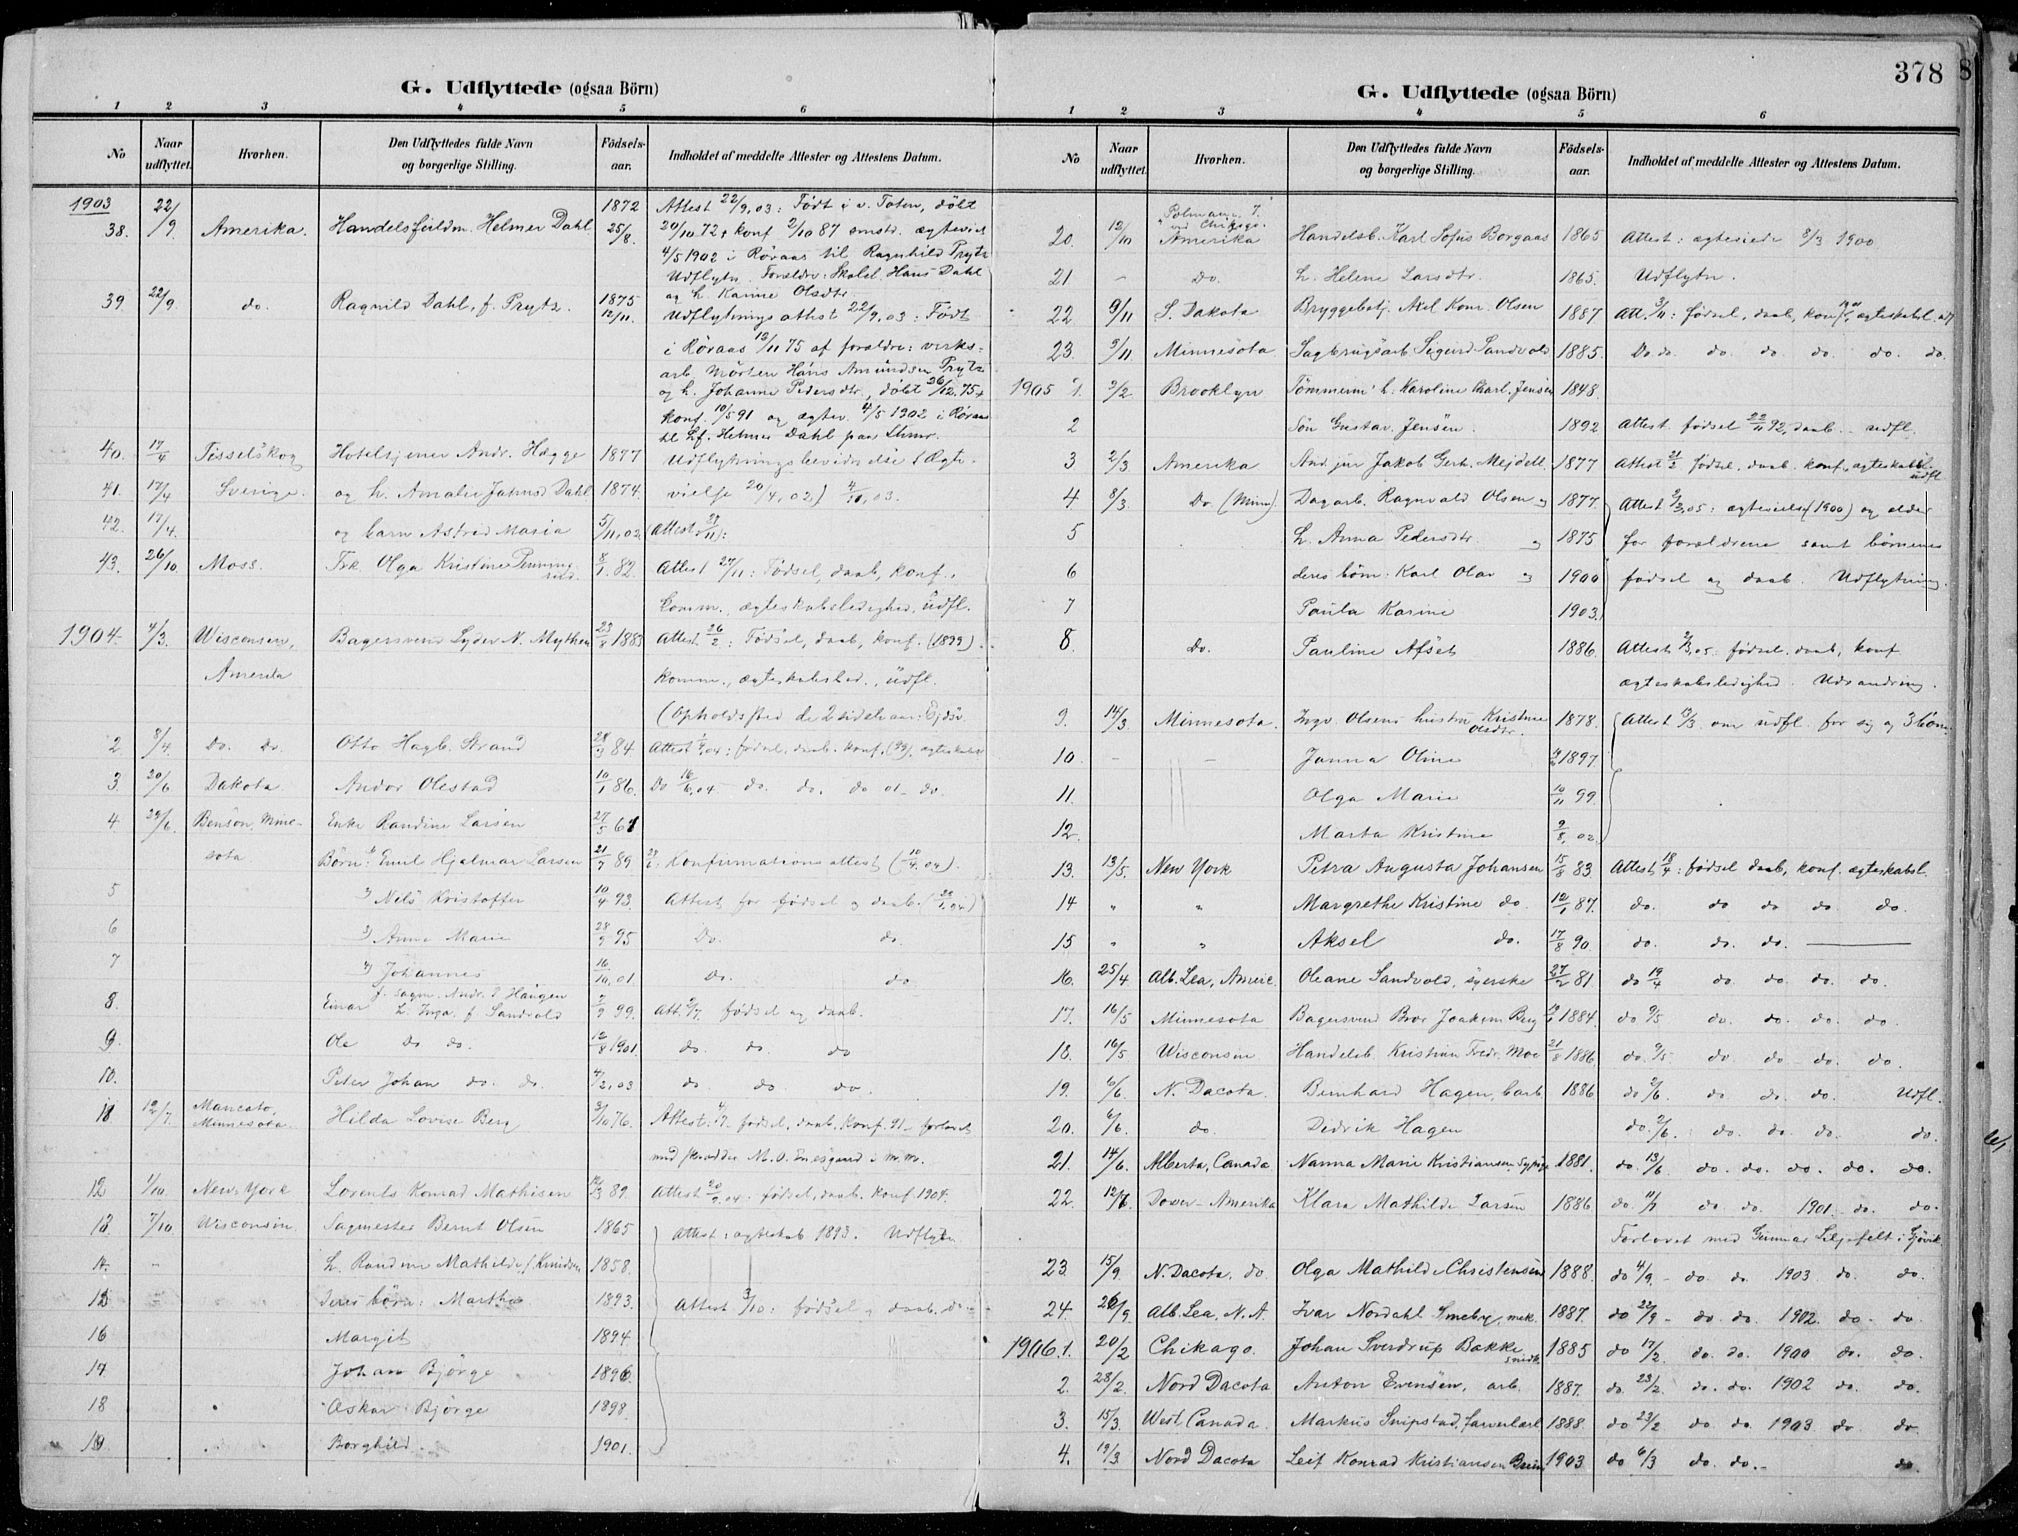 378
G. Udflyttede (ogsaa Börn)
1 2 3 4 5 6
No Naar udflyttet. Hvorhen. Den Udflyttedes fulde Navn og borgerlige Stilling. Födsels-aar. Indholdet af meddelte Attester og Attestens Datum.
1903
38. 22/9. Amerika. Handelsfuldm. Helmer Dahl 1872 25/8. Attest 22/9.03: Födt i v. Toten, döbt
20/10 72, konf 2/10 87 smstd. ægteviet
4/5 1902 i Röraas til Ragnhild Prytz
Udflytn. Forældre: Skolel. Hans Dahl
og h. Karine Olsdtr.
39. 22/9. do. Ragnild Dahl, f. Prytz. 1875 12/11. Udflytnings attest 22/9.03: Födt
i Röraas 12/11 75 af forældre: verks-
arb. Morten Hans Amundsen Prytz
og h. Johanne Pedersdtr, döbt 26/12.75,
konf. 10/5 91 og ægtev. 4/5 1902 i Röraas
til Hf. Helmer Dahl paa Lhmr.
40. 17/4 Tisselskog Hotelsjener Andr. Hægge 1877 Udflytningsbevidnelse (Ægte-
41. 17/4 Sverige. og h. Amalie Jahnsd Dahl 1874. vielse 20/4.02) 4/11.03.
42. 17/4. og barn Astrid Maria 5/11.02 Attest 27/11:
43. 26/10 Moss. Frk. Olga Kristine Penning- 8/1 82. Attest 27/11: Födsel, daab, konf.,
rud. komm., ægteskabsledighed, üdfl.
1904. 4/3. Wisconsen, Bagersvend Syder N. Mythen 23/8 1883 Attest 26/2: Födsel, daab, konf. (1899).
Amerika komm., ægteskabsled., üdfl.
(Opholdssted de 2 sidste aar: Ejdsv.
2 8/4. Do. Do. Otto Hagb. Strand 28/3 84 Attest 5/4.04: födsel, daab, konf. (99), ægteskabsl
3. 20/6 Dakota. Andor Olestad 10/1 86. Do 16/6.04 - do. do. do ol- do.
4 29/6. Benson, Mine- Enke Randine Larsen 27/5 61
sota Børn: 1) Emil Hjalmar Larsen 21/9 89 29/6. Konfirmations attest (10/4.04).
5 2) Nils Kristoffer 10/4 93. Attest for födsel og daab.
6 3) Anna Marie 28/9 95 Do. do.
7 4) Johannes 16/10.01 Do. do
8. Einar f. sagm. Andr. P Haugen
h. Inga f Sandvold 2/9 99. Att. 2/7. födsel og daab.
9. Ole do do. 12/8 1901 do. do. do
10. Peter Johan do. do. 4/2.03 do. do. do.
11 12/7. Mancato, Minnesota. Hilda Lovise Berg 3/10 76. Attest 4/7. födsel, daab, konf. 91 - forlovet
med skrædder M. O. Enesgaard i m.m.
12 1/10. New-York Lorents Konrad Mathisen 12/3 89. Attest 20/9.04: födsel, daab, konf. 1904.
13 7/10 Wisconsin. Sagmester Bernt Olsen 1865 Attest: ægteskab 1893. Udflytn
14. - h. Randine Mathilde f Knudsen 1858.
15 deres börn: Martha 1893. Attest 3/10: födsel og daab. do
16 Margit 1894.
17 Johan Bjørge 1896.
18 Oskar Bjørge 1898.
19 Borghild. 1901.
G. Udflyttede (ogsaa Börn)
1 2 3 4 5 6
No Naar udflyttet. Hvorhen. Den Udflyttedes fulde Navn og borgerlige Stilling. Födsels-aar. Indholdet af meddelte Attester og Attestens Datum.
20. 12/10 ved Chikago. Amerika Handelsb. Karl Sofus Borgaas 1865 Attest: ægteviede 8/3 1900
21 - Do. h. Helene Larsdtr. 1865. Udflytn.
22 9/11 S. Dakota Bryggebetj. Aksel Konr. Olsen 1887 Att. 3/11: födsel, daab, konf, ægteskabsl.
23. 9/11 Minnesota Sagbrugsarb. Sigurd Sandvold 1885. Do. do do. do. do. do. do.
1905 1. 2/2 Brooklyn Tömmerm. h. Karoline Charl. Jensen 1848.
2 Sön Gustav Jensen. 1892 Attest. födsel 22/11 92, daab. - udfl.
3 2/3 Amerika Stud. jur Jakob Gerh. Mejdell 1877 Attest 21/2 födsel, daab, konf., ægteskabsl.
udfl
4 8/3 Do (Minn). Dagarb. Ragnvald Olsen og 1877. Attest 2/3.05: ægteviede (1900) og alder
5 h. Anna Pedersdtr og 1875 for forældrene samt børnenes
6 deres børn: Karl Olav og 1900 födsel og daab. Udflytning.
7 Paula Karine 1903.
8. Do. Pauline Afset 1886. Attest 2/3.05: födsel, daab, konf
ægteskabsledighed. Udvandring.
9. 14/3 Minnesota. Ingv. Olsens hustru Kristine Olsdtr. 1878. Attest 13/3 om udfl. for sig og 3 børn
10. - - Janna Oline 1897.
11. Olga Marie 10/11 99.
12. Marta Kristine 9/8.02.
13. 13/5. New York Petra Augusta Johansen 15/8 83 Attest 18/4: födsel daab, konf. ægteskabsl.
14 " " Margrethe Kristine do. 12/1 87. do. do do do do.
15 " " Aksel do. 17/8 90. do. do. do.
16. 25/4 Alb. Lea, Americ. Oleane Sandvold, syerske 27/2 81. do 19/4 do. do. do. do.
17. 16/5 Minnesota Bagersvend Bror Joakim Berg 1884. do 9/5 do. do. do. do.
18. 16/5 Wisconsin Handelsb. Kristian Fredr. Moe 21/8 1886 do. 9/5 do do - do do.
19. 6/6. N. Dacota. Bernhard Hagen, barb. 1886. do 2/6. do. do. do. Udfl.
20. 6/6. do. Didrik Hagen do. 2/6. do. do. do. do.
21. 14/6. Alberta, Canada Nanna Marie Kristiansen Sypige 1881. do. 13/6 do. do. do. do. do.
22. 12/6 Dower - Amerika Klara Mathilde Larsen 1886 do. do. do. 1901 - do. do.
Forlovet med Gunnar Liljefelt i Gjövik
23. 15/9. N. Dacota, do. Olga Mathilde Christensen 1888. do 4/9 - do. do. 1903. do. do.
24. 26/9 Alb. Lea, N. A. Ivar Nordahl Smeby, mek. 1887. do 22/9 - do. do. 1902. do - do.
1906. 1. 20/2 Chikago. Johan Sverdrup Bakke, smedk. 1885 do 17/2 do. do. 1900 do. do.
2. 28/2. Nord Dacota Anton Evensen, arb. 1887. do. 23/2 do. do. 1902 do. do.
3. 15/3 West Canada. Markus Snipstad, farverlærl 1888. do 23/2 do. do. 1903 do do.
4. 19/3. Nord Dacota Leif Konrad Kristiansen Brun 1903. do 6/3 do. do. - do.